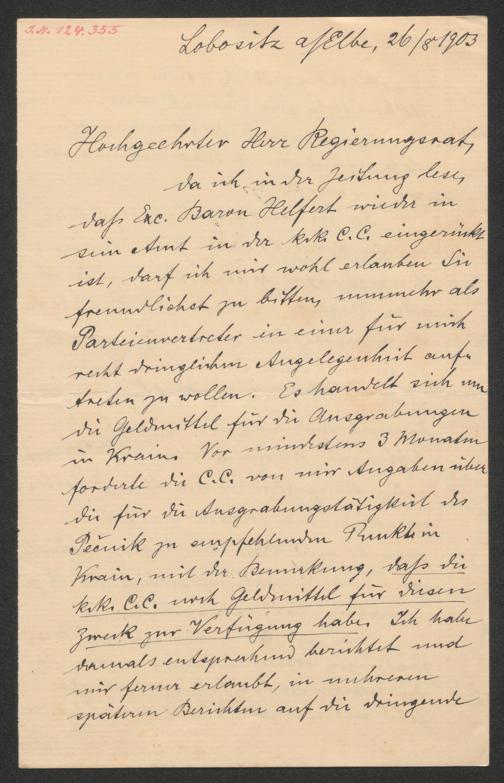 J.N. 124.355
Lobositz a/Elbe, 26/8 1903
Hochgeehrter Herr Regierungsrat,
da ich in der Zeitung lese,
daß Exc. Baron Helfert wieder in
sein Amt in der k.k. C.C. eingerückt
ist, darf ich mir wohl erlauben Sie
freundlichst zu bitten, nunmehr als
Parteienvertreter in einer für mich
recht dringlichen Angelegenheit auf-
treten zu wollen. Es handelt sich um
die Geldmittel für die Ausgrabungen
in Krain. Vor mindestens 3 Monaten
forderte die C.C. von mir Angaben über
die für die Ausgrabungstätigkeit des
Pečnik zu empfehlenden Punkte in
Krain, mit der Bemerkung, daß die
k.k. C.C. noch Geldmittel für diesen
Zweck zur Verfügung habe. Ich habe
damals entsprechend berichtet und
mir ferner erlaubt, in mehreren
späteren Berichten auf die dringende